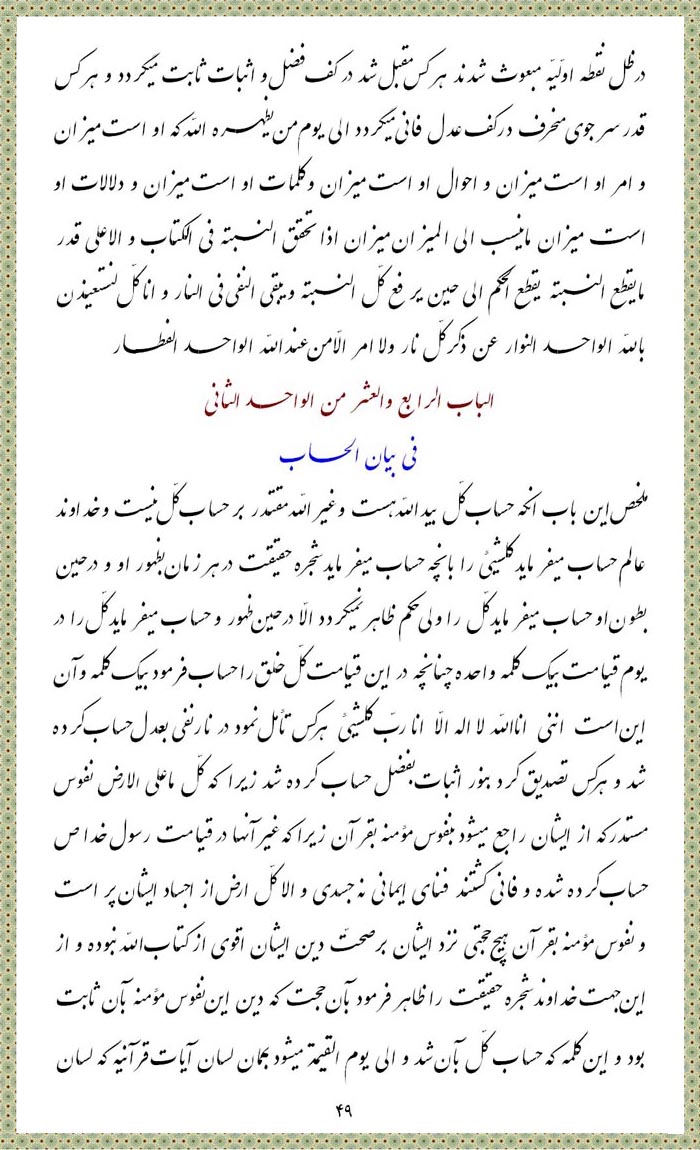 درظل نقطه اولیّه مبعوث شدند هرکس مقبل شد درکف فضل و اثبات ثابت میگردد و هرکس
قدر سرجوی منحرف درکف عدل فانی میگردد الی یوم من یظهره اللّه که او است میزان
و امر او است میزان و احوال او است میزان و کلمات او است میزان و دلالات او
است میزان ماینسب الی المیزان میزان اذا تحقق النسبته فی الکتاب و الاعلی قدر
مایقطع النسبته یقطع الحکم الی حین یرفع کلّ النسبته و یبقی النفی فی النار و اناکلّ لنستعیذن
باللّه الواحد النوار عن ذکرکلّ نار ولا امر الّامن عنداللّه الواحد الفطار
الباب الرابع والعشر من الواحد الثانی
فی بیان الحساب
ملخص این باب انکه حساب کلّ بیداللّه هست وغیراللّه مقتدر برحساب کلّ نیست وخداوند
عالم حساب میفرماید کلشیئی را بانچه حساب میفرماید شجره حقیقت درهرزمان بظهور او و درحین
بطون او حساب میفرماید کلّ را ولی حکم ظاهر نمیگردد الّا درحین ظهور و حساب میفرماید کلّ را در
یوم قیامت بیک کلمه واحده چنانچه در این قیامت کلّ خلق را حساب فرمود بیک کلمه وآن
این است اننی اناالله لا اله الّا انا ربّ کلشیئی هرکس تأمل نمود در نارنفی بعدل حساب کرده
شد و هرکس تصدیق کرد بنور اثبات بفضل حساب کرده شد زیرا که کلّ ماعلی الارض نفوس
مستدرکه از ایشان راجع میشود بنفوس مؤمنه بقرآن زیراکه غیرآنها درقیامت رسول خدا ص
حساب کرده شده و فانی گشتند فنای ایمانی نه جسدی و الا کلّ ارض از اجساد ایشان پر است
و نفوس مؤمنه بقرآن هیچ حجتی نزد ایشان برصحّت دین ایشان اقوی ازکتاب اللّه نبوده و از
این جهت خداوند شجره حقیقت را ظاهر فرمود بآن حجت که دین این نفوس مؤمنه بآن ثابت
بود و این کلمه که حساب کلّ بآن شد و الی یوم القیمة میشود بهمان لسان آیات قرآنیه که لسان
۴۹